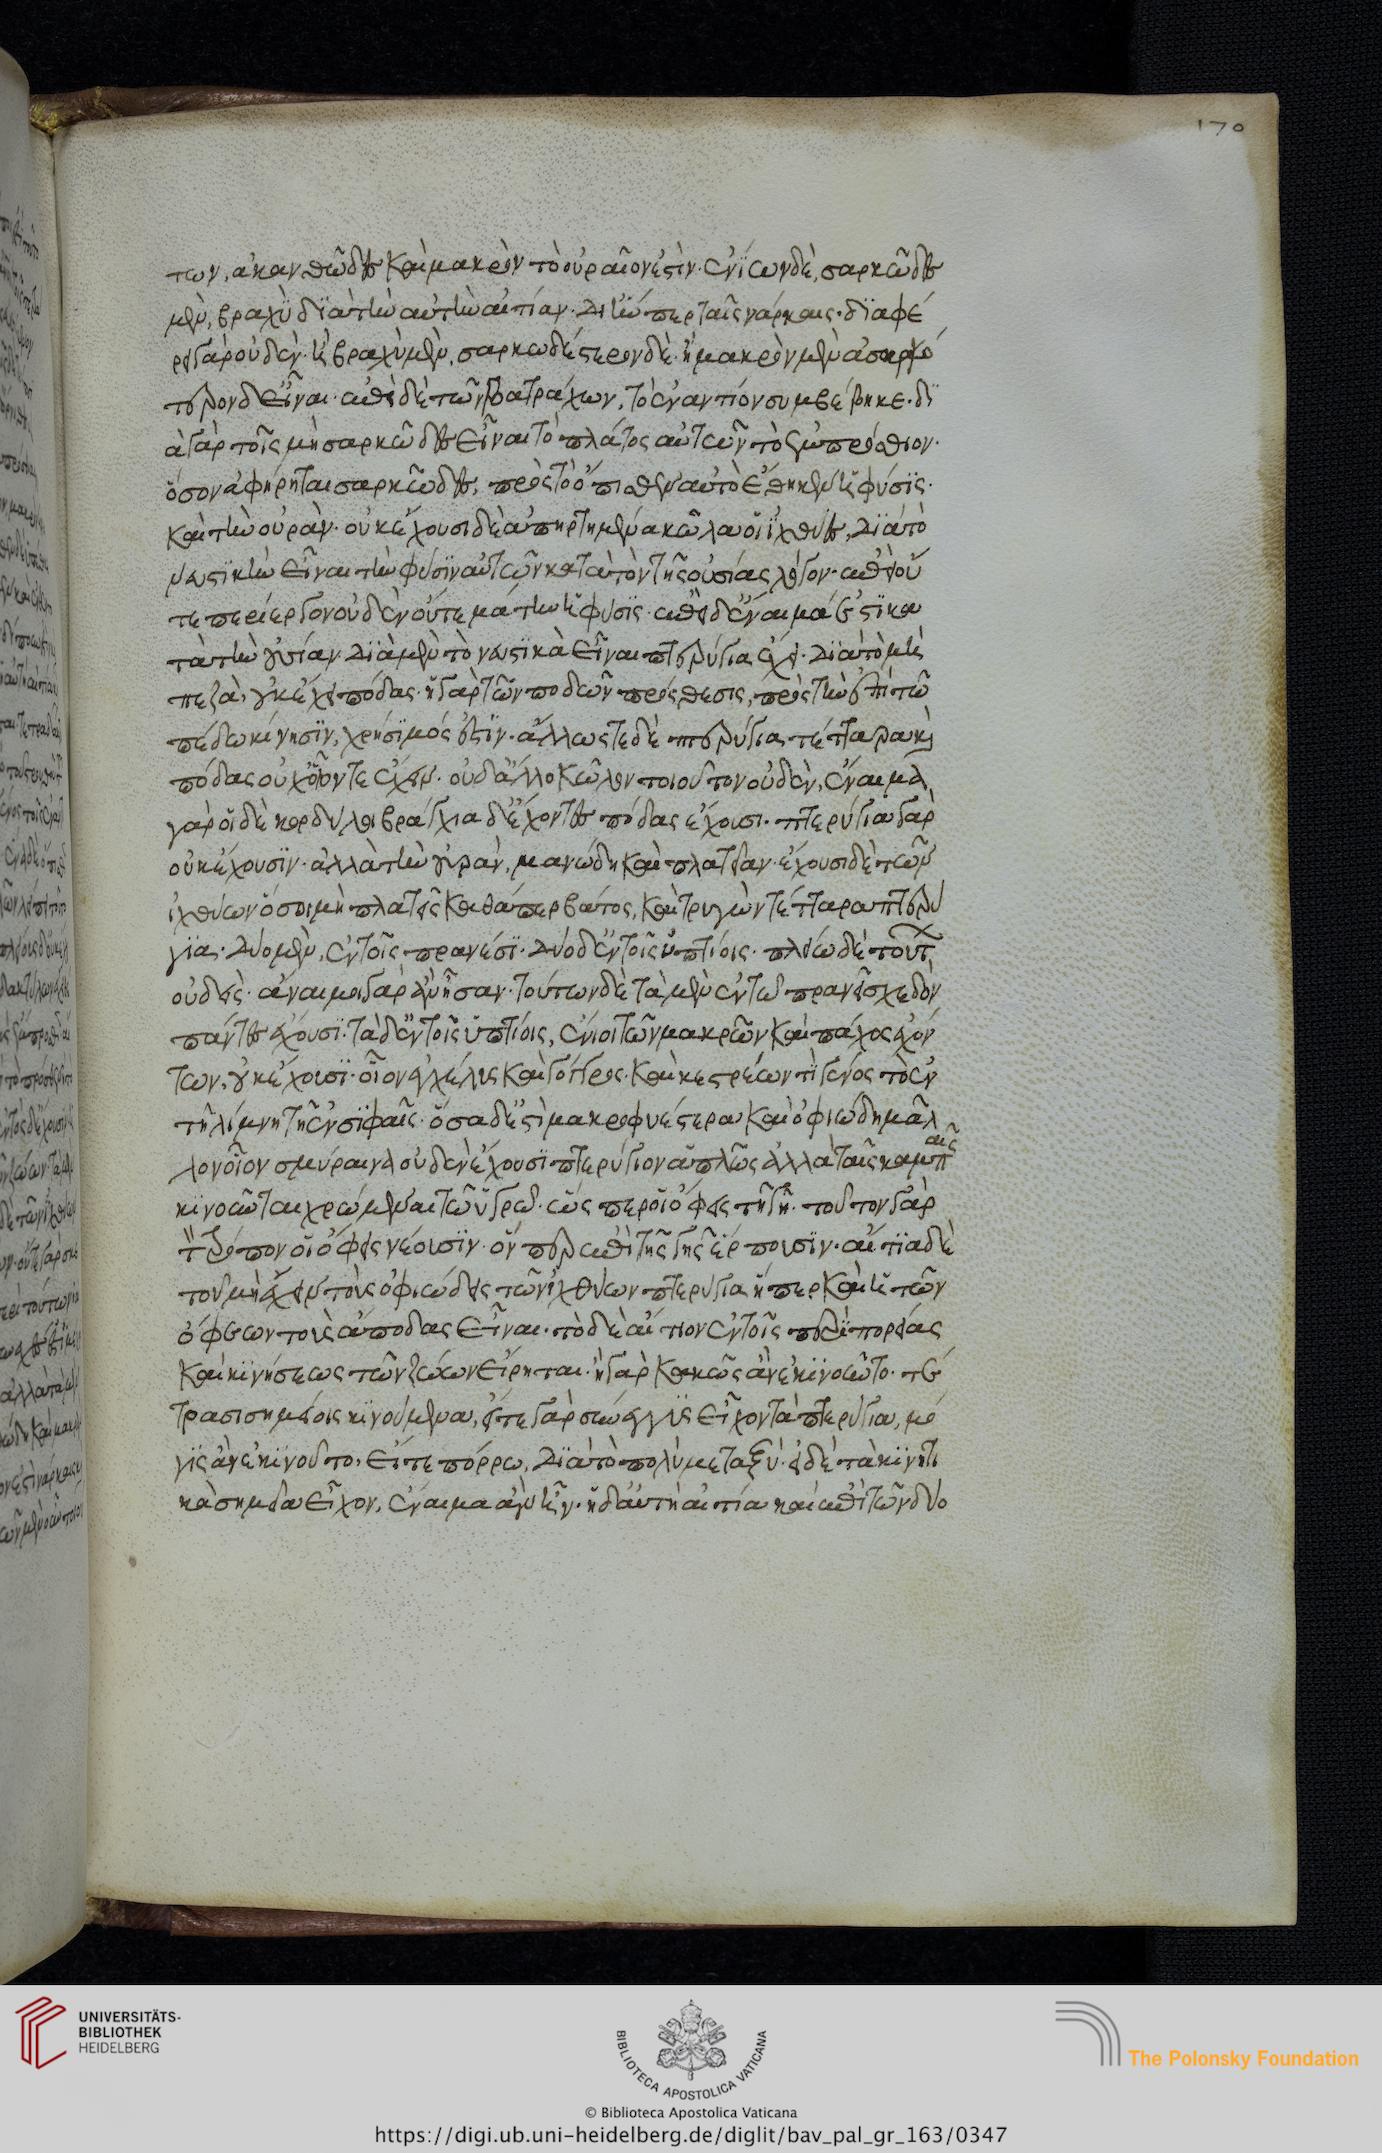 των, ἀκανθῶδες καὶ μακρὸν τὸ οὐραῖον ἐστὶν· ἐνΐων δὲ, σαρκῶδες
μὲν, βραχὺ δϊὰ τὴν αὐτὴν αἰτίαν· δι ἥν περ ταῖς νάρκαις· δϊαφέ
ρει γὰρ οὐδὲν· ἢ βραχὺ μὲν, σαρκωδέστερον δὲ· ἢ μακρὸν μὲν ἀσαρκό
τερον δ εἶναι· ἐπὶ δὲ τῶν βατράχων, τὸ ἐναντίον συμβέβηκε· δϊ
ὰ γὰρ τοῖς μὴ σαρκῶδες εἶναι τὸ πλάτος αὐτῶν τὸ ἐμπρόσθιον·
ὅσον ἀφήρηται σαρκῶδες, πρὸς τὸ ὄπισθεν αὐτὸ ἔθηκεν ἡ φύσϊς·
καὶ τὴν οὐράν· οὐκ ἔχουσι δὲ ἀπηρτημένα κῶλα οἱ ἰχθύες, διὰ τὸ
νευστϊκὴν εἶναι τὴν φύσϊν αὐτῶν κατὰ τὸν τῆς οὐσίας λόγον· ἐπεὶ οὔ
τε περίεργον οὐδὲν οὔτε μάτην ἡ φύσϊς· ἐπεὶ δ ἔναιμά ἐστϊ κα
τὰ τὴν οὐσίαν, διὰ μὲν τὸ νευστϊκὰ εἶναι πτερύγια ἔχει· διὰ τὸ μὴ
πεζὰ, οὐκ ἔχει πόδας· ἡ γὰρ τῶν ποδῶν πρόσθεσις, πρὸς τὴν ἐπὶ τῶ
πέδω κίνησϊν, χρήσϊμός ἐστϊν· ἄλλως τε δὲ πτερύγια τέτταρα καὶ
πόδας οὐχ οἷόν τε ἔχειν· οὐδ ἄλλο κῶλον τοιοῦτον οὐδὲν, ἔναιμα
γάρ οἱ δὲ κορδύλοι βράγχια δ ἔχοντες πόδας ἔχουσι· πτερύγια γὰρ
οὐκ ἔχουσϊν· ἀλλὰ τὴν οὐρὰν, μανώδη καὶ πλατεῖαν· ἔχουσι δὲ τῶν
ἰχθύων ὅσοι μὴ πλατεῖς καθάπερ βάτος, καὶ τρυγὼν τέτταρα πτερύ
γϊα· δύο μὲν, ἐν τοῖς πρανέσϊ· δύο δ ἐν τοῖς ὑπτίοις· πλείω δὲ τούτ
οὐδεὶς· ἄναιμοι γὰρ ἂν ἦσαν· τούτων δὲ τὰ μὲν ἐν τῶ πρανεῖ σχεδὸν
πάντες ἔχουσϊ· τὰ δ ἐν τοῖς ὑπτίοις, ἔνιοι τῶν μακρῶν καὶ πάχος ἐχόν
των, οὐκ ἔχουσϊ· οἷον ἔγχελυς καὶ γόγγρος· καὶ κεστρέων τὶ γένος τὸ ἐν
τῆ λίμνη τῆ ἐν σϊφαῖς· ὅσα δ ἐστὶ μακροφυέστερα καὶ ὀφιώδη μᾶλ
λον οἷον σμύραινα οὐδὲν ἔχουσϊ πτερύγιον ἁπλῶς ἀλλὰ ταῖς καμπαῖς
κϊνοῦνται χρώμεναι τῶ ὑγρῶ· ὥς περ οἱ ὄφεις τῆ γῆ· τοῦτον γὰρ
τὸν τρόπον οἱ ὄφεις νέουσϊν· ὅν περ ἐπὶ τῆς γῆς ἕρπουσϊν· αἰτϊα δὲ
τοῦ μὴ ἔχειν τοὺς ὀφιώδεις τῶν ἰχθύων πτερύγια ἥ περ καὶ ἡ τῶν
ὄφεων τοὺς ἄποδας εἶναι· τὸ δὲ αἴτιον ἐν τοῖς περὶ πορείας
καὶ κϊνήσεως τῶν ζώων εἴρηται· ἢ γὰρ κακῶς ἂν ἐκϊνοῦντο· τέ
τρασι σημείοις κϊνούμενα, εἴτε γὰρ σύνεγγϊς εἶχον τὰ πτερύγια, μό
γϊς ἂν ἐκϊνοῦντο, εἴτε πόρρω, διὰ τὸ πολὺ μεταξύ· εἰ δὲ τὰ κϊνητι
κὰ σημεῖα εἶχον, ἔναιμα ἂν ἦν· ἡ δ αὐτὴ αἰτία καὶ ἐπὶ τῶν δύο
170
UNIVERSITÄTS-
BIBLIOTHEK
HEIDELBERG
BIBLIOTECA APOSTOLICA VATICANA
The Polonsky Foundation
© Biblioteca Apostolica Vaticana
https://digi.ub.uni-heidelberg.de/diglit/bav_pal_gr_163/0347